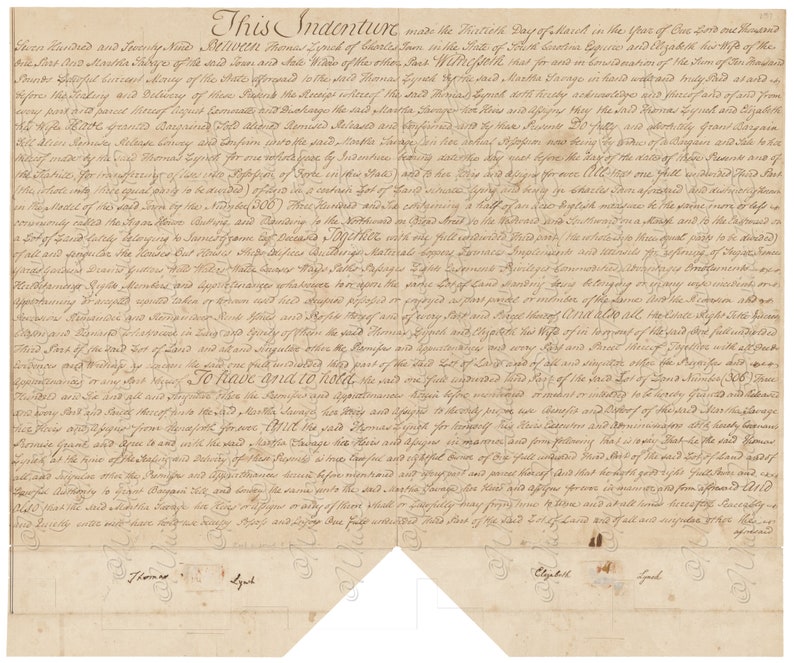 This Indenture made the Thirtieth Day of March in the Year of Our Lord one Thousand
Seven Hundred and Seventy Nine Between Thomas Lynch of Charles Town in the State of South Carolina Esquire and Elizabeth his Wife of the
One Part And Martha Savage of the said Town and State Widow of the other Part Witnesseth that for and in Consideration of the Sum of Ten Thousand
Pounds Lawful Current Money of the State aforesaid to the said Thomas Lynch by the said Martha Savage in hand well and truly Paid at and
before the Sealing and Delivery of these Presents the Receipt whereof the said Thomas Lynch doth hereby acknowledge and thereof and of and from
every part and parcel thereof Acquit Exonerate and Discharge the said Martha Savage her Heirs and Assigns they the said Thomas Lynch and Elizabeth
his Wife Have granted Bargained Sold aliened Remised Released and Confirmed and by these Presents Do fully and absolutely Grant Bargain
Sell alien Remise Release Convey and Confirm unto the said Martha Savage in her actual Possession now being by virtue of a Bargain and Sale to her
thereof made by the said Thomas Lynch for one whole year by Indenture bearing date the day next before the day of the date of these Presents and of
the Statute for transferring of Uses into Possession of Force in this State) and to her Heirs and assigns forever All that one full undivided Third Part
(the whole into three equal parts to be divided) of and in a certain Lot of Land situate lying and being in Charles Town aforesaid and distinguished
in the Model of the said Town by the Number (306) Three Hundred and Six containing a half of an acre English measure be the same more or less
commonly called the Sugar House Butting and Bounding to the Northward on Broad Street to the Westward and Southward on a Marsh and to the Eastward on
a Lot of Land lately belonging to James Graeme Esqr. Deceased Together with one full undivided third part (the whole into three equal parts to be divided)
of all and singular the Houses Out Houses Sheds Edifices Buildings Materials Coppers Furnaces Implements and Utensils for refining of Sugar Fences
Yards Gardens Drains Gutters Wells Waters Water Courses Ways Paths Passages Lights Easements Privileges Commodities Advantages Emoluments
Hereditaments Rights Members and Appurtenances whatsoever to or upon the same Lot of Land standing being belonging or in any wise incident or
appertaining or accepted reputed taken or known used held occupied possessed or enjoyed as part parcel or member of the same And the Reversion and
Reversions Remainder and Remainders Rents Issues and Profits thereof and of every Part and Parcel thereof And also all the Estate Right Title Interest
Claim and Demand whatsoever in Law and Equity of them the said Thomas Lynch and Elizabeth his Wife of in to or out of the said One full undivided
Third Part of the said Lot of Land and all and Singular other the Premises and appurtenances and every Part and Parcel thereof Together with all Deeds
Evidences and Writings as concern the said one full undivided third part of the said Lot of Land and of all and singular other the Premises and
Appurtenances or any Part thereof To have and to hold the said one full undivided Third Part of the said Lot of Land Number (306) Three
Hundred and Six and all and Singular other the Premises and Appurtenances herein before mentioned or meant or intended to be hereby Granted and Released
and every Part and Parcel thereof unto the said Martha Savage her Heirs and Assigns to the only proper use Benefit and Behoof of the said Martha Savage
her Heirs and Assigns from thenceforth for ever And the said Thomas Lynch for himself his Heirs Executors and Administrators doth hereby Covenant
Promise Grant and Agree to and with the said Martha Savage her Heirs and Assigns in manner and form following that is to say That he the said Thomas
Lynch at the time of the Sealing and delivery of these Presents is true Lawful and rightful Owner of One full undivided Third Part of the said Lot of Land and of
all and singular other the Premises and Appurtenances herein before mentioned and every part and parcel thereof And that he hath good right full Power and
Lawful Authority to Grant Bargain Sell and Convey the same unto the said Martha Savage her Heirs and assigns forever in manner and form aforesaid And
Also that the said Martha Savage her Heirs or assigns or any of them shall or Lawfully may from time to time and at all times hereafter Peaceably
and Quietly enter into have hold use occupy Possess and Enjoy One full undivided Third Part of the said Lot of Land and of all and singular other the
aforesaid
Thomas Lynch
Elizabeth Lynch